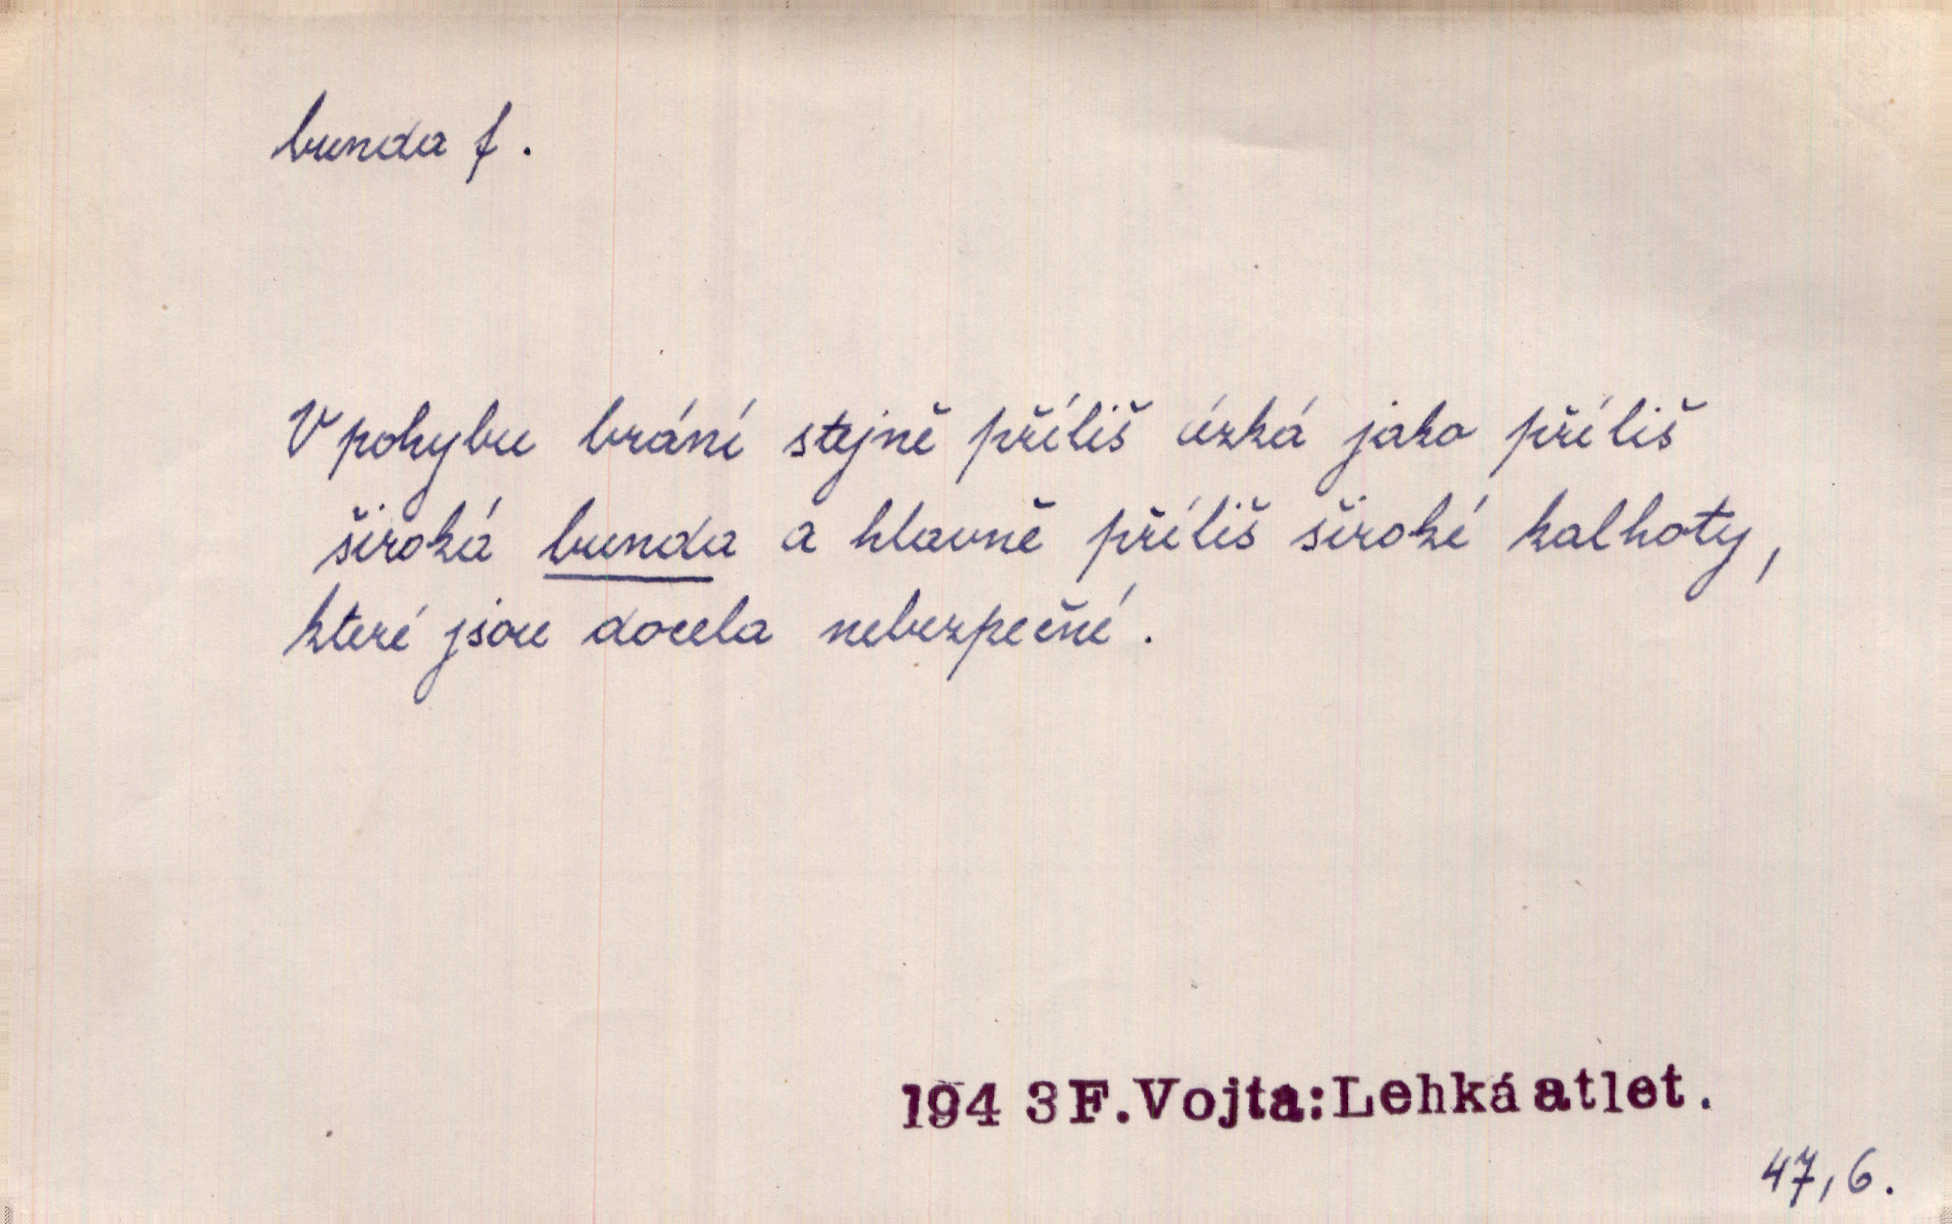 bunda f.
V pohybu brání stejně příliš úzká jako příliš
široká bunda a hlavně příliš široké kalhoty,
které jsou docela nebezpečné.
1943 F. Vojta: Lehká atlet.
47, 6.